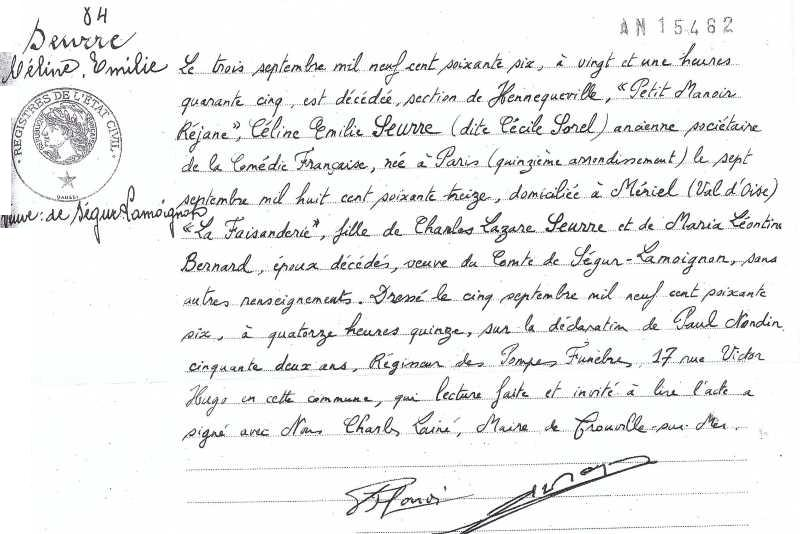 84
AN 15462
Seurre
Céline, Emilie
Le trois septembre mil neuf cent soixante six, à vingt et une heures
quarante cinq, est décédée, section de Hennequeville, "Petit Manoir
Réjane", Céline Emilie Seurre (dite Cécile Sorel) ancienne sociétaire
de la Comédie Française, née à Paris (quinzième arrondissement) le sept
septembre mil huit cent soixante treize, domiciliée à Mériel (Val d'Oise)
"La Faisanderie", fille de Charles Lazare Seurre et de Maria Léontine
Bernard, époux décédés, veuve du Comte de Ségur-Lamoignon, sans
autres renseignements. Dressé le cinq septembre mil neuf cent soixante
six, à quatorze heures quinze, sur la déclaration de Paul Nondin
cinquante deux ans, Régisseur des Pompes Funèbres, 17 rue Victor
Hugo en cette commune, qui lecture faite et invité à lire l'acte a
signé avec Nous Charles Lainé, Maire de Trouville-sur-Mer.
REGISTRES DE L'ETAT CIVIL
veuve: de Ségur Lamoignon